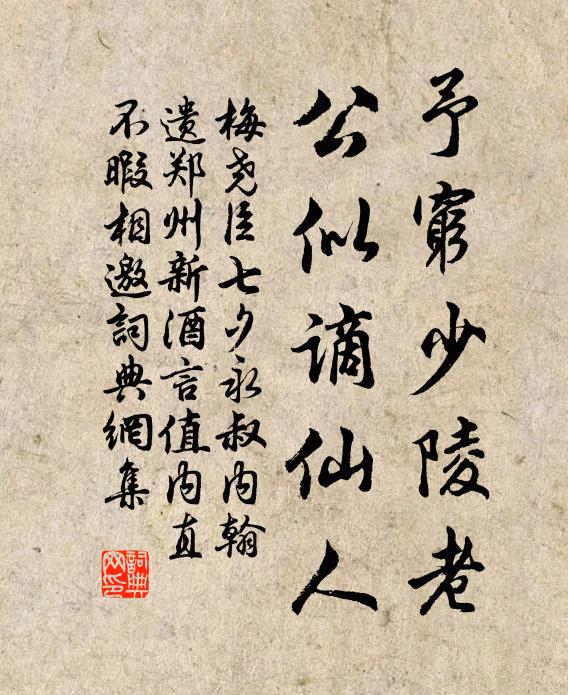 予窮少陵老
公似謫仙人
梅尧臣七夕永叔内翰
遗郑州新酒言值内直
不暇相邀詞典網集
詞典网印